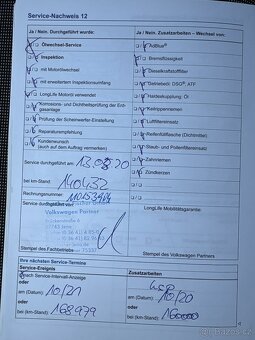 Service-Nachweis 12
Ja / Nein. Durchgeführt wurde:
Ölwechsel-Service
Inspektion
mit Motorölwechsel
mit erweitertem Inspektionsumfang
LongLife Motoröl verwendet
Korrosions- und Dichtheitsprüfung der Erdgasanlage
Prüfung der Scheinwerfer-Einstellung
Reparaturempfehlung
Kundenwunsch
(auch auf den Auftrag vermerken)
Service durchgeführt am:
bei km-Stand: 140432
Rechnungsnummer:
Service durchgeführt von:
Volkswagen Partner
Stempel des Fachbetriebs
Ja / Nein. Zusatzarbeiten – Wechsel von:
AdBlue®
Bremsflüssigkeit
Dieselkraftstofffilter
Getriebeöl: DSG®, ATF
Haldexkupplung: Öl
Keilrippenriemen
Luftfiltereinsatz
Reifenfüllflasche (Dichtmittel)
Staub- und Pollenfiltereinsatz
Zahnriemen
Zündkerzen
LongLife Mobilitätsgarantie:
Stempel des Volkswagen Partners
Ihre nächsten Service-Termine
Service-Ereignis
nach Service-Intervall-Anzeige
oder
am (Datum): 10/21
oder
bei km-Stand: 168979
Zusatzarbeiten
am (Datum): 10/20
oder
bei km-Stand: